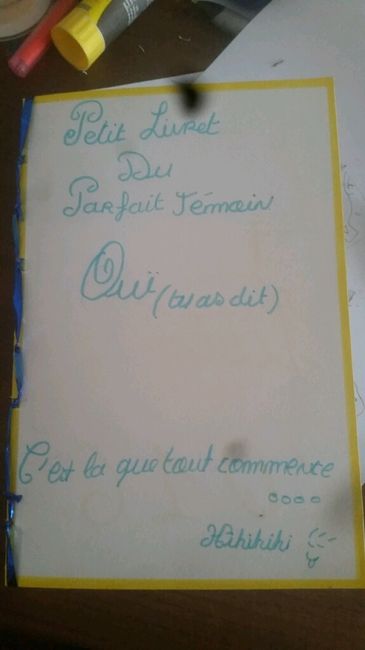 Petit Livret
Du
Parfait Témoin
Ouï (tu as dit)
C'est la que tout commence
oooo
Hihihihi